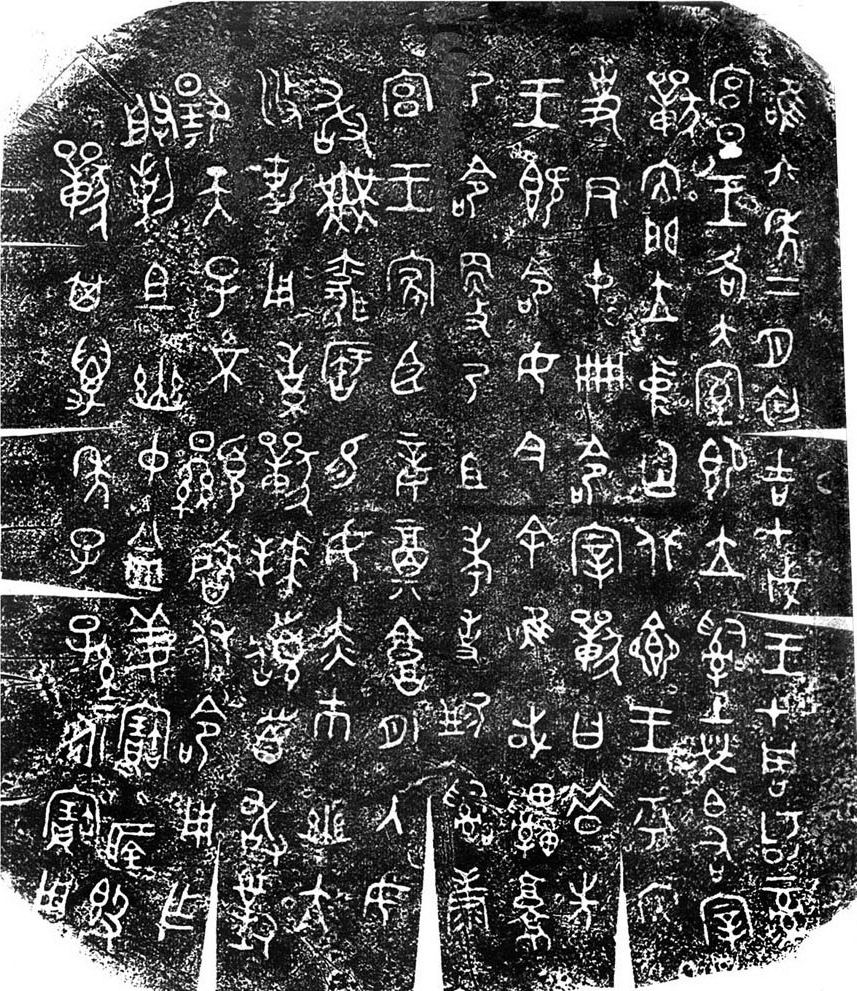 唯六年二月初吉甲戌王才周師彔
宮旦王各大室即立𤔲土焚白右宰
獸內門立中廷北鄉王乎內
史尹中冊命宰獸曰昔先
王既命女今余唯或𤕌𩫨
乃命更乃且考事𦔻𤔲康
宮王家臣妾𡙕𩫏外入毋
敢無聞智易女赤巿幽亢
攸勒用事獸拜稽首敢對
揚天子不顯魯休命用乍
朕剌且幽中益姜寶匽簋
獸其萬年子子孫永寶用